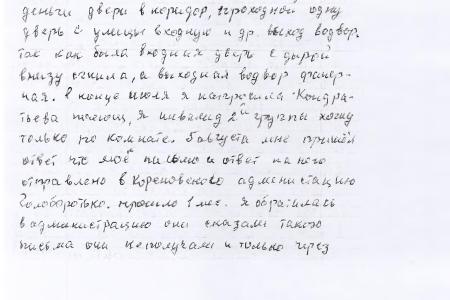 деньги двери в коридор, проходной одну
дверь с улицы входную и др. выход водвор.
Так как была входная дверь с дырой
внизу сгнила, а выходная водвор фанер-
ная. В конце июля я попросила Кондра-
тьева помощ, я инвалид 2й группы хожу
только по комнате. 6 августа мне пришёл
ответ что моё письмо и ответ на него
отправлено в Кореновскою администацию
Голоборотько. прошло 1 мес. Я обратилась
в администрацию они сказали такого
письма они неполучали и только через